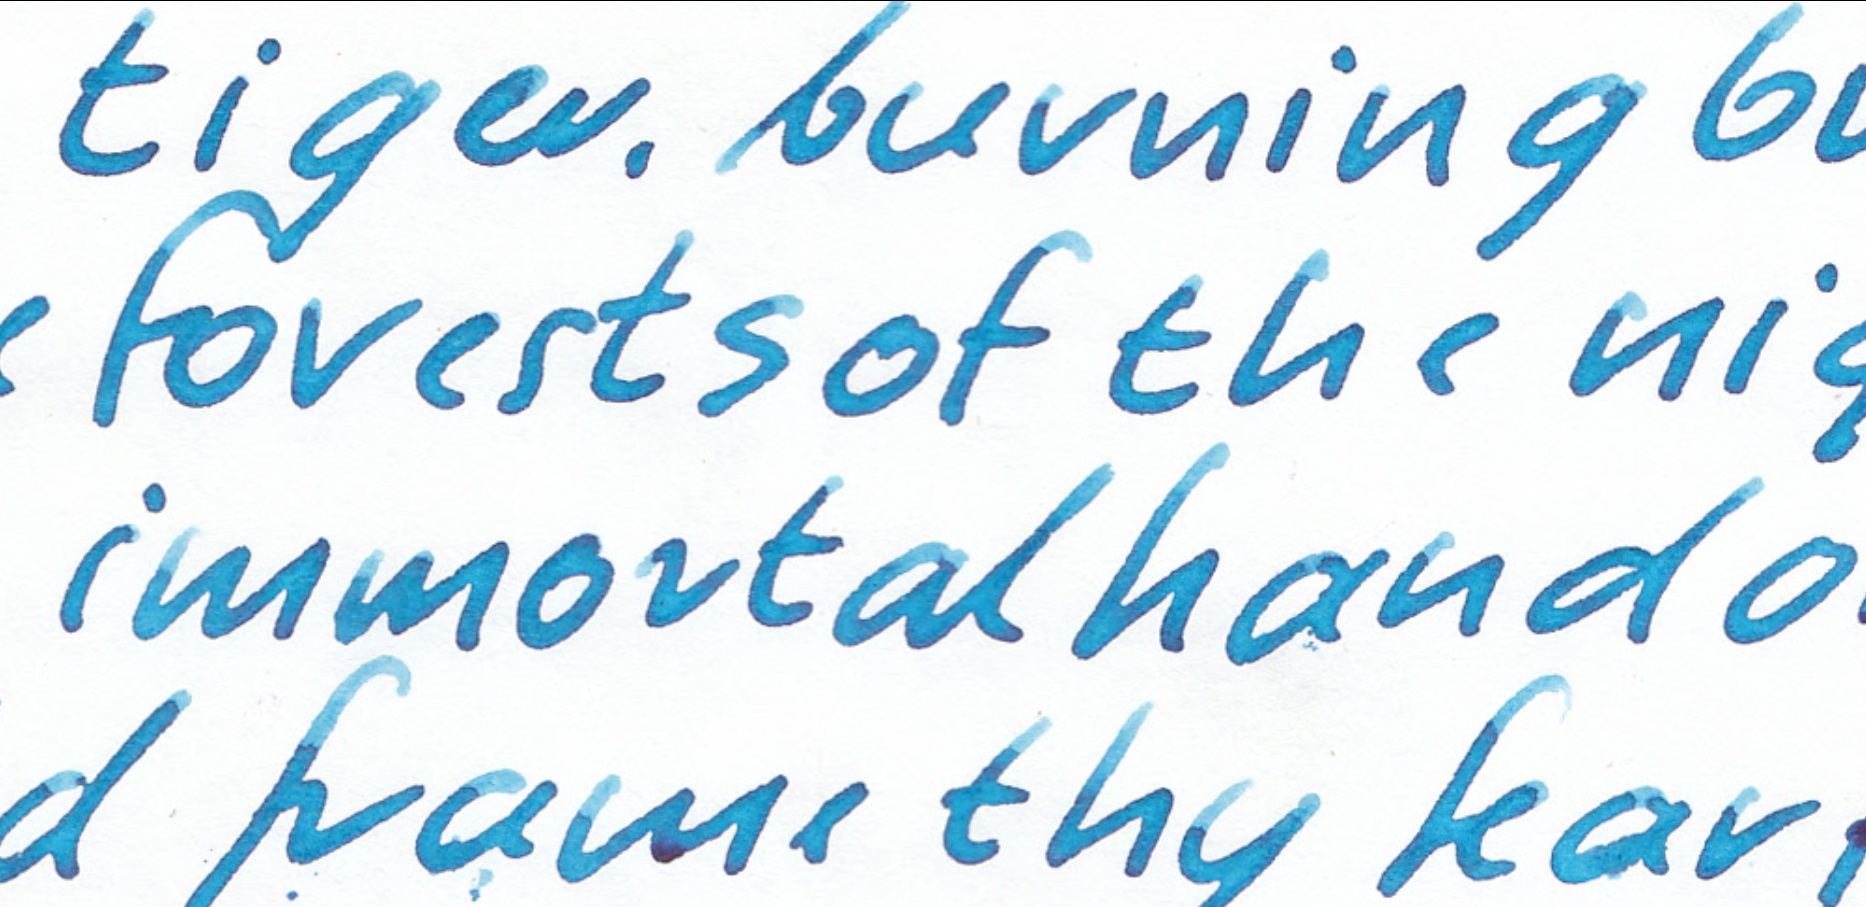 tiger, burning b
forests of the nig
immortal hand o
d frame thy fear